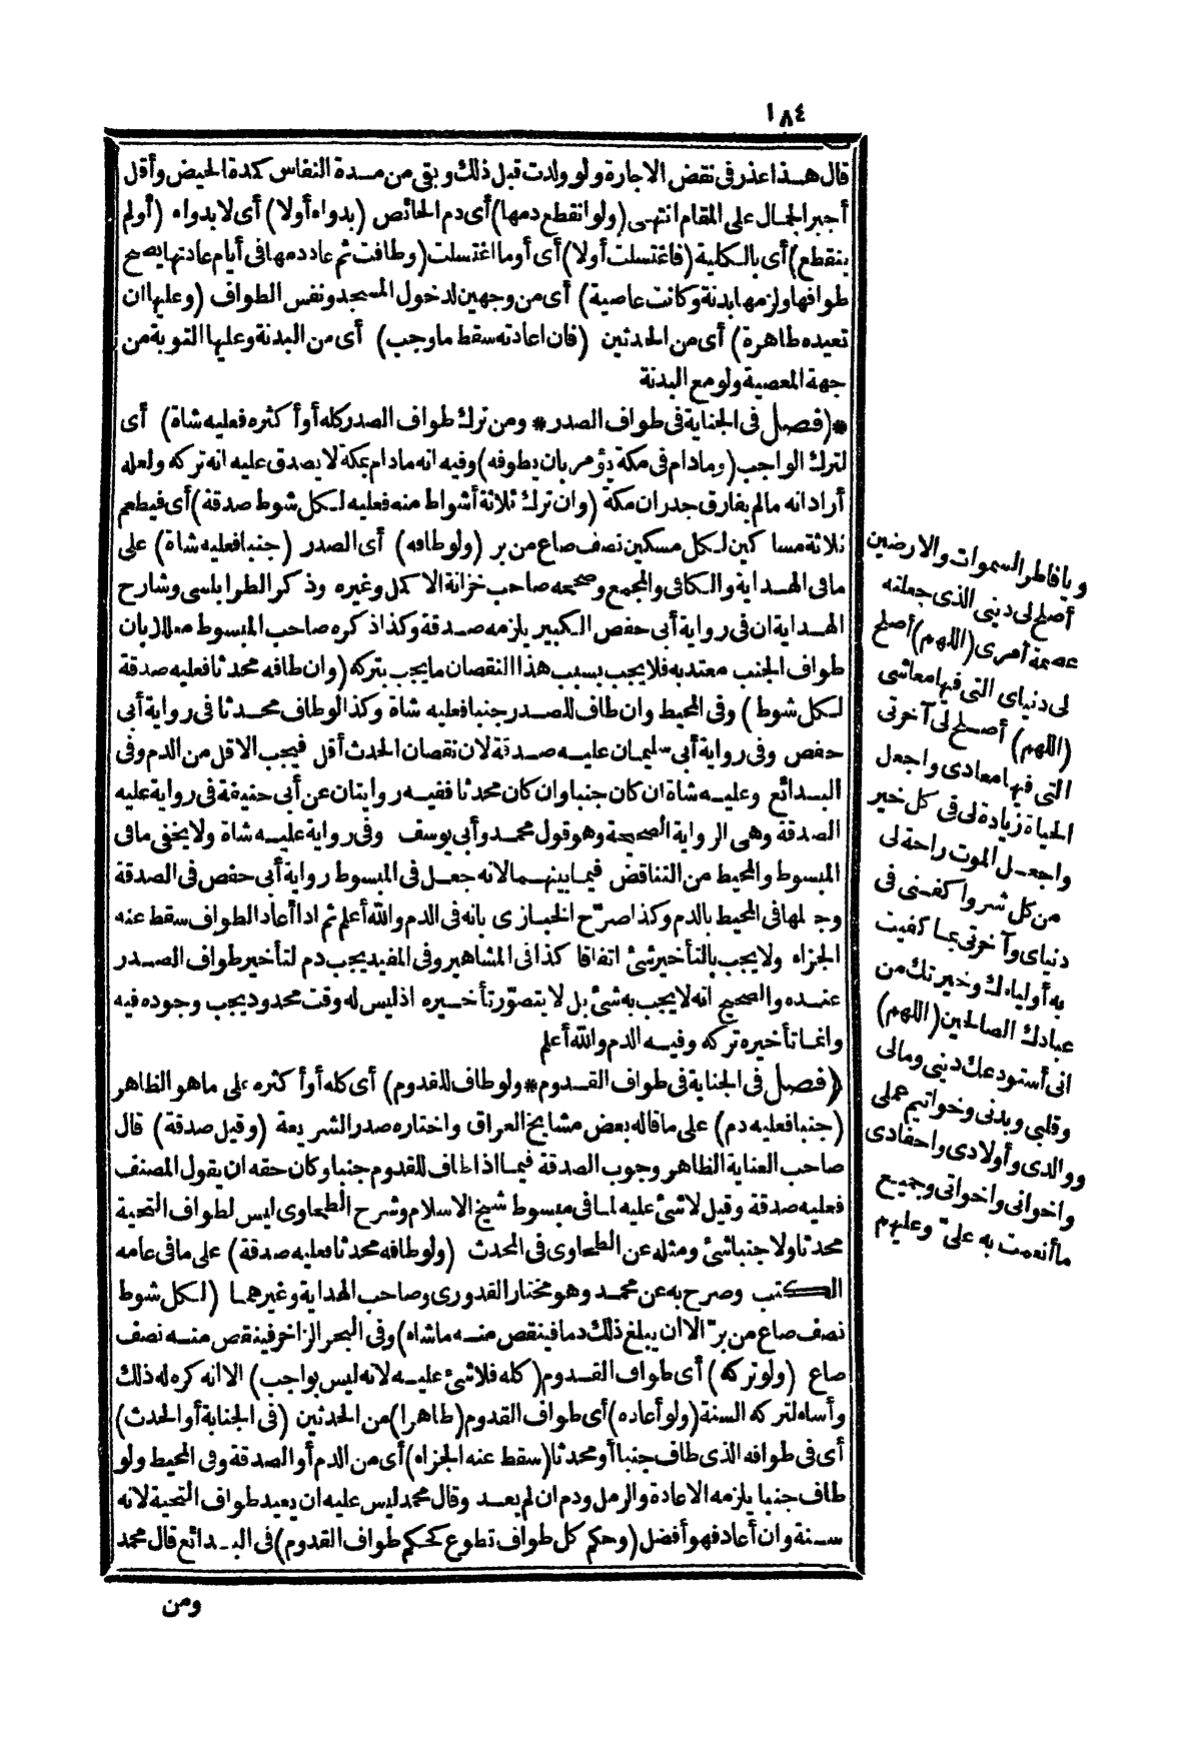 ١٨٤
قال هذا عذر في نقض الاجارة ولو ولدت قبل ذلك وبقي من مدة النفاس كمدة الحيض وأقل
أجبر الجمال على المقام انتهى (ولو انقطع دمها) أى دم الحائض (بدواء أولا) أى لا بدواء (أولم
ينقطع) أى بالكلية (فاغتسلت أولا) أى أو ما اغتسلت (وطافت ثم عاد دمها في أيام عادتها يصح
طوافها ولزمها بدنة وكانت عاصية) أى من وجهين لدخول المسجد ونفس الطواف (وعليها ان
تعيده طاهرة) أى من الحدثين (فان اعادته سقط ما وجب) أى من البدنة وعليها التوبة من
جهة المعصية ولو مع البدنة
*(فصل فى الجناية فى طواف الصدر* ومن ترك طواف الصدر كله أو أكثره فعليه شاة) أى
لترك الواجب (ومادام فى مكة يؤمر بان يطوفه) وفيه انه مادام بمكة لا يصدق عليه انه تركه ولعله
أراد انه مالم يفارق جدران مكة (وان ترك ثلاثة أشواط منه فعليه لكل شوط صدقة) أى فيطعم
ثلاثة مساكين لكل مسكين نصف صاع من بر (ولو طافه) أى الصدر (جنبا فعليه شاة) على
مافى الهداية والكافى والمجمع وصححه صاحب خزانة الاكمل وغيره وذكر الطرابلسى وشارح
الهداية ان فى رواية أبى حفص الكبير يلزمه صدقة وكذا ذكره صاحب المبسوط معللا بان
طواف الجنب معتد به فلا يجب بسبب هذا النقصان ما يجب بتركه (وان طافه محدثا فعليه صدقة
لكل شوط) وفى المحيط وان طاف للصدر جنبا فعليه شاة وكذا لو طاف محدثا فى رواية أبى
حفص وفى رواية أبى سليمان عليه صدقة لان نقصان الحدث أقل فيجب الاقل من الدم وفى
البدائع وعليه شاة ان كان جنبا وان كان محدثا ففيه روايتان عن أبى حنيفة فى رواية عليه
الصدقة وهى الرواية الصحيحة وهو قول محمد وأبى يوسف وفى رواية عليه شاة ولا يخفى مافى
المبسوط والمحيط من التناقض فيما بينهما لانه جعل فى المبسوط رواية أبى حفص فى الصدقة
وجعلها فى المحيط بالدم وكذا صرّح الخبازى بانه فى الدم والله أعلم ثم اذا أعاد الطواف سقط عنه
الجزاء ولا يجب بالتأخير شئ اتفاقا كذا فى المشاهير وفى المفيد يجب دم لتأخير طواف الصدر
عنده والصحيح انه لا يجب به شئ بل لا يتصوّر تأخيره اذ ليس له وقت محدود يجب وجوده فيه
وانما تأخيره تركه وفيه الدم والله أعلم
(فصل فى الجناية فى طواف القدوم* ولو طاف للقدوم) أى كله أو أكثره على ما هو الظاهر
(جنبا فعليه دم) على ما قاله بعض مشايخ العراق واختاره صدر الشريعة (وقيل صدقة) قال
صاحب العناية الظاهر وجوب الصدقة فيما اذا طاف للقدوم جنبا وكان حقه ان يقول المصنف
فعليه صدقة وقيل لاشئ عليه لما فى مبسوط شيخ الاسلام وشرح الطحاوى ليس لطواف التحية
محدثا ولا جنبا شئ ومثله عن الطحاوى فى المحدث (ولو طافه محدثا فعليه صدقة) على مافى عامه
الكتب وصرح به عن محمد وهو مختار القدورى وصاحب الهداية وغيرهما (لكل شوط
نصف صاع من برّ الا ان يبلغ ذلك دما فينقص منه ماشاء) وفى البحر الزاخر فينقص منه نصف
صاع (ولو تركه) أى طواف القدوم (كله فلاشئ عليه لانه ليس بواجب) الا انه كره له ذلك
وأساء لتركه السنة (ولو أعاده) أى طواف القدوم (طاهرا) من الحدثين (فى الجنابة أو الحدث)
أى فى طوافه الذى طاف جنبا أو محدثا (سقط عنه الجزاء) أى من الدم أو الصدقة وفى المحيط ولو
طاف جنبا يلزمه الاعادة والرمل ودم ان لم يعد وقال محمد ليس عليه ان يعيد طواف التحية لانه
سنة وان أعاد فهو أفضل (وحكم كل طواف تطوع كحكم طواف القدوم) فى البدائع قال محمد
ومن
ويا فاطر السموات والارضين
أصلح لى دينى الذى جعلته
عصمة أمرى (اللهم) أصلح
لى دنياى التى فيها معاشى
(اللهم) أصلح لى آخرتى
التى فيها معادى واجعل
الحياة زيادة لى فى كل خير
واجعل الموت راحة لى
من كل شر واكفنى فى
دنياى وآخرتى بما كفيت
به أولياءك وخيرتك من
عبادك الصالحين (اللهم)
انى أستودعك دينى ومالى
وقلبى وبدنى وخواتيم عملى
ووالدى وأولادى واحفادى
واخوانى واخواتى وجميع
ما أنعمت به علىّ وعليهم